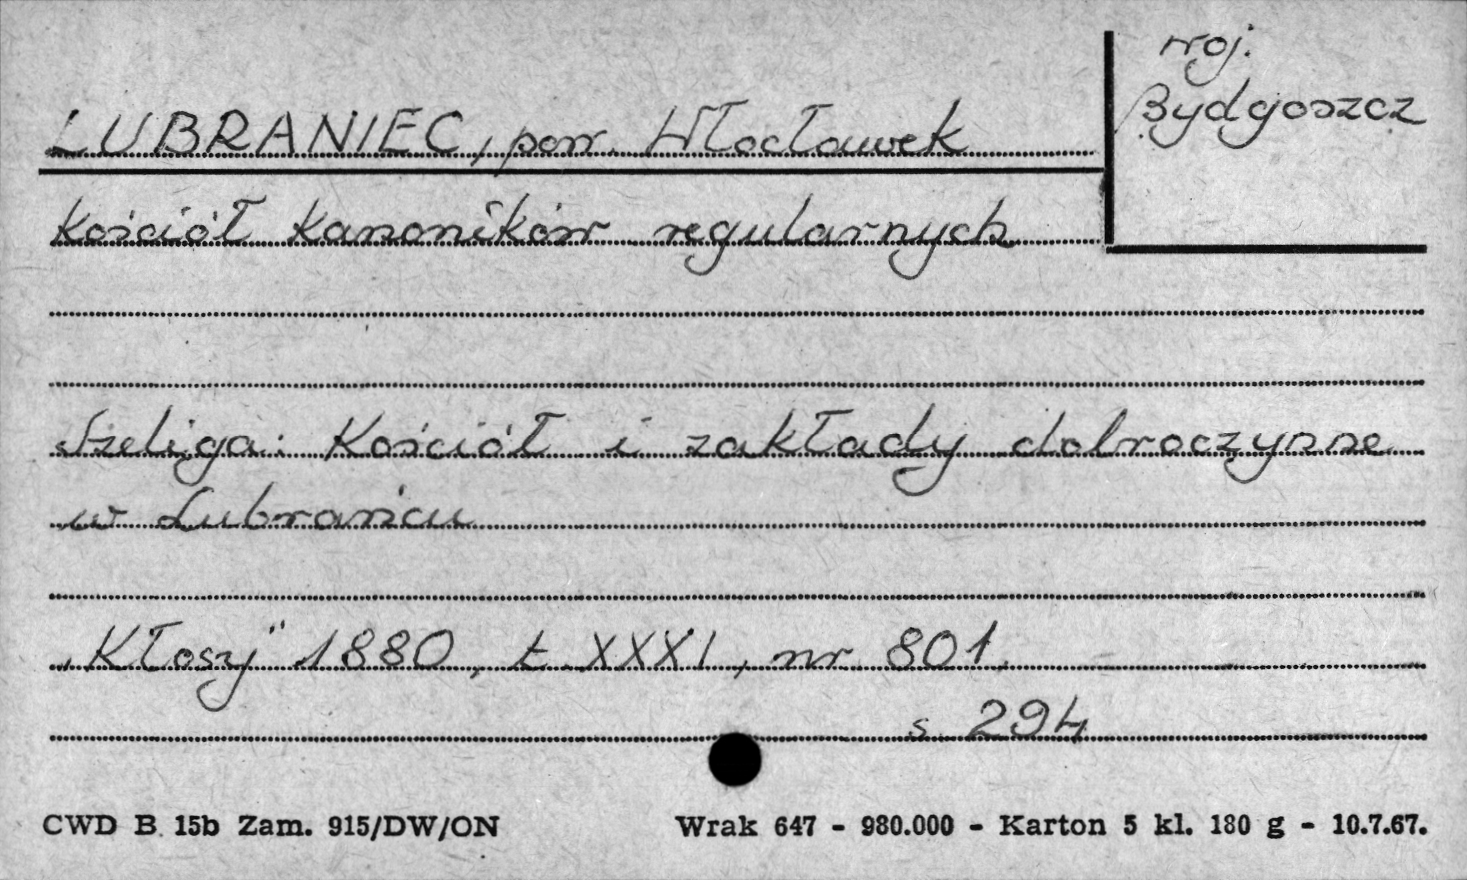 woj.
Bydgoszcz
LUBRANIEC, pow. Włocławek
Kościół Kanoników regularnych
Szeliga: Kościół i zakłady dobroczynne
w Lubrańcu
„Kłosy" 1880, t. XXXI, nr 801,
s. 294
CWD B. 15b Zam. 915/DW/ON Wrak 647 - 980.000 - Karton 5 kl. 180 g - 10.7.67.